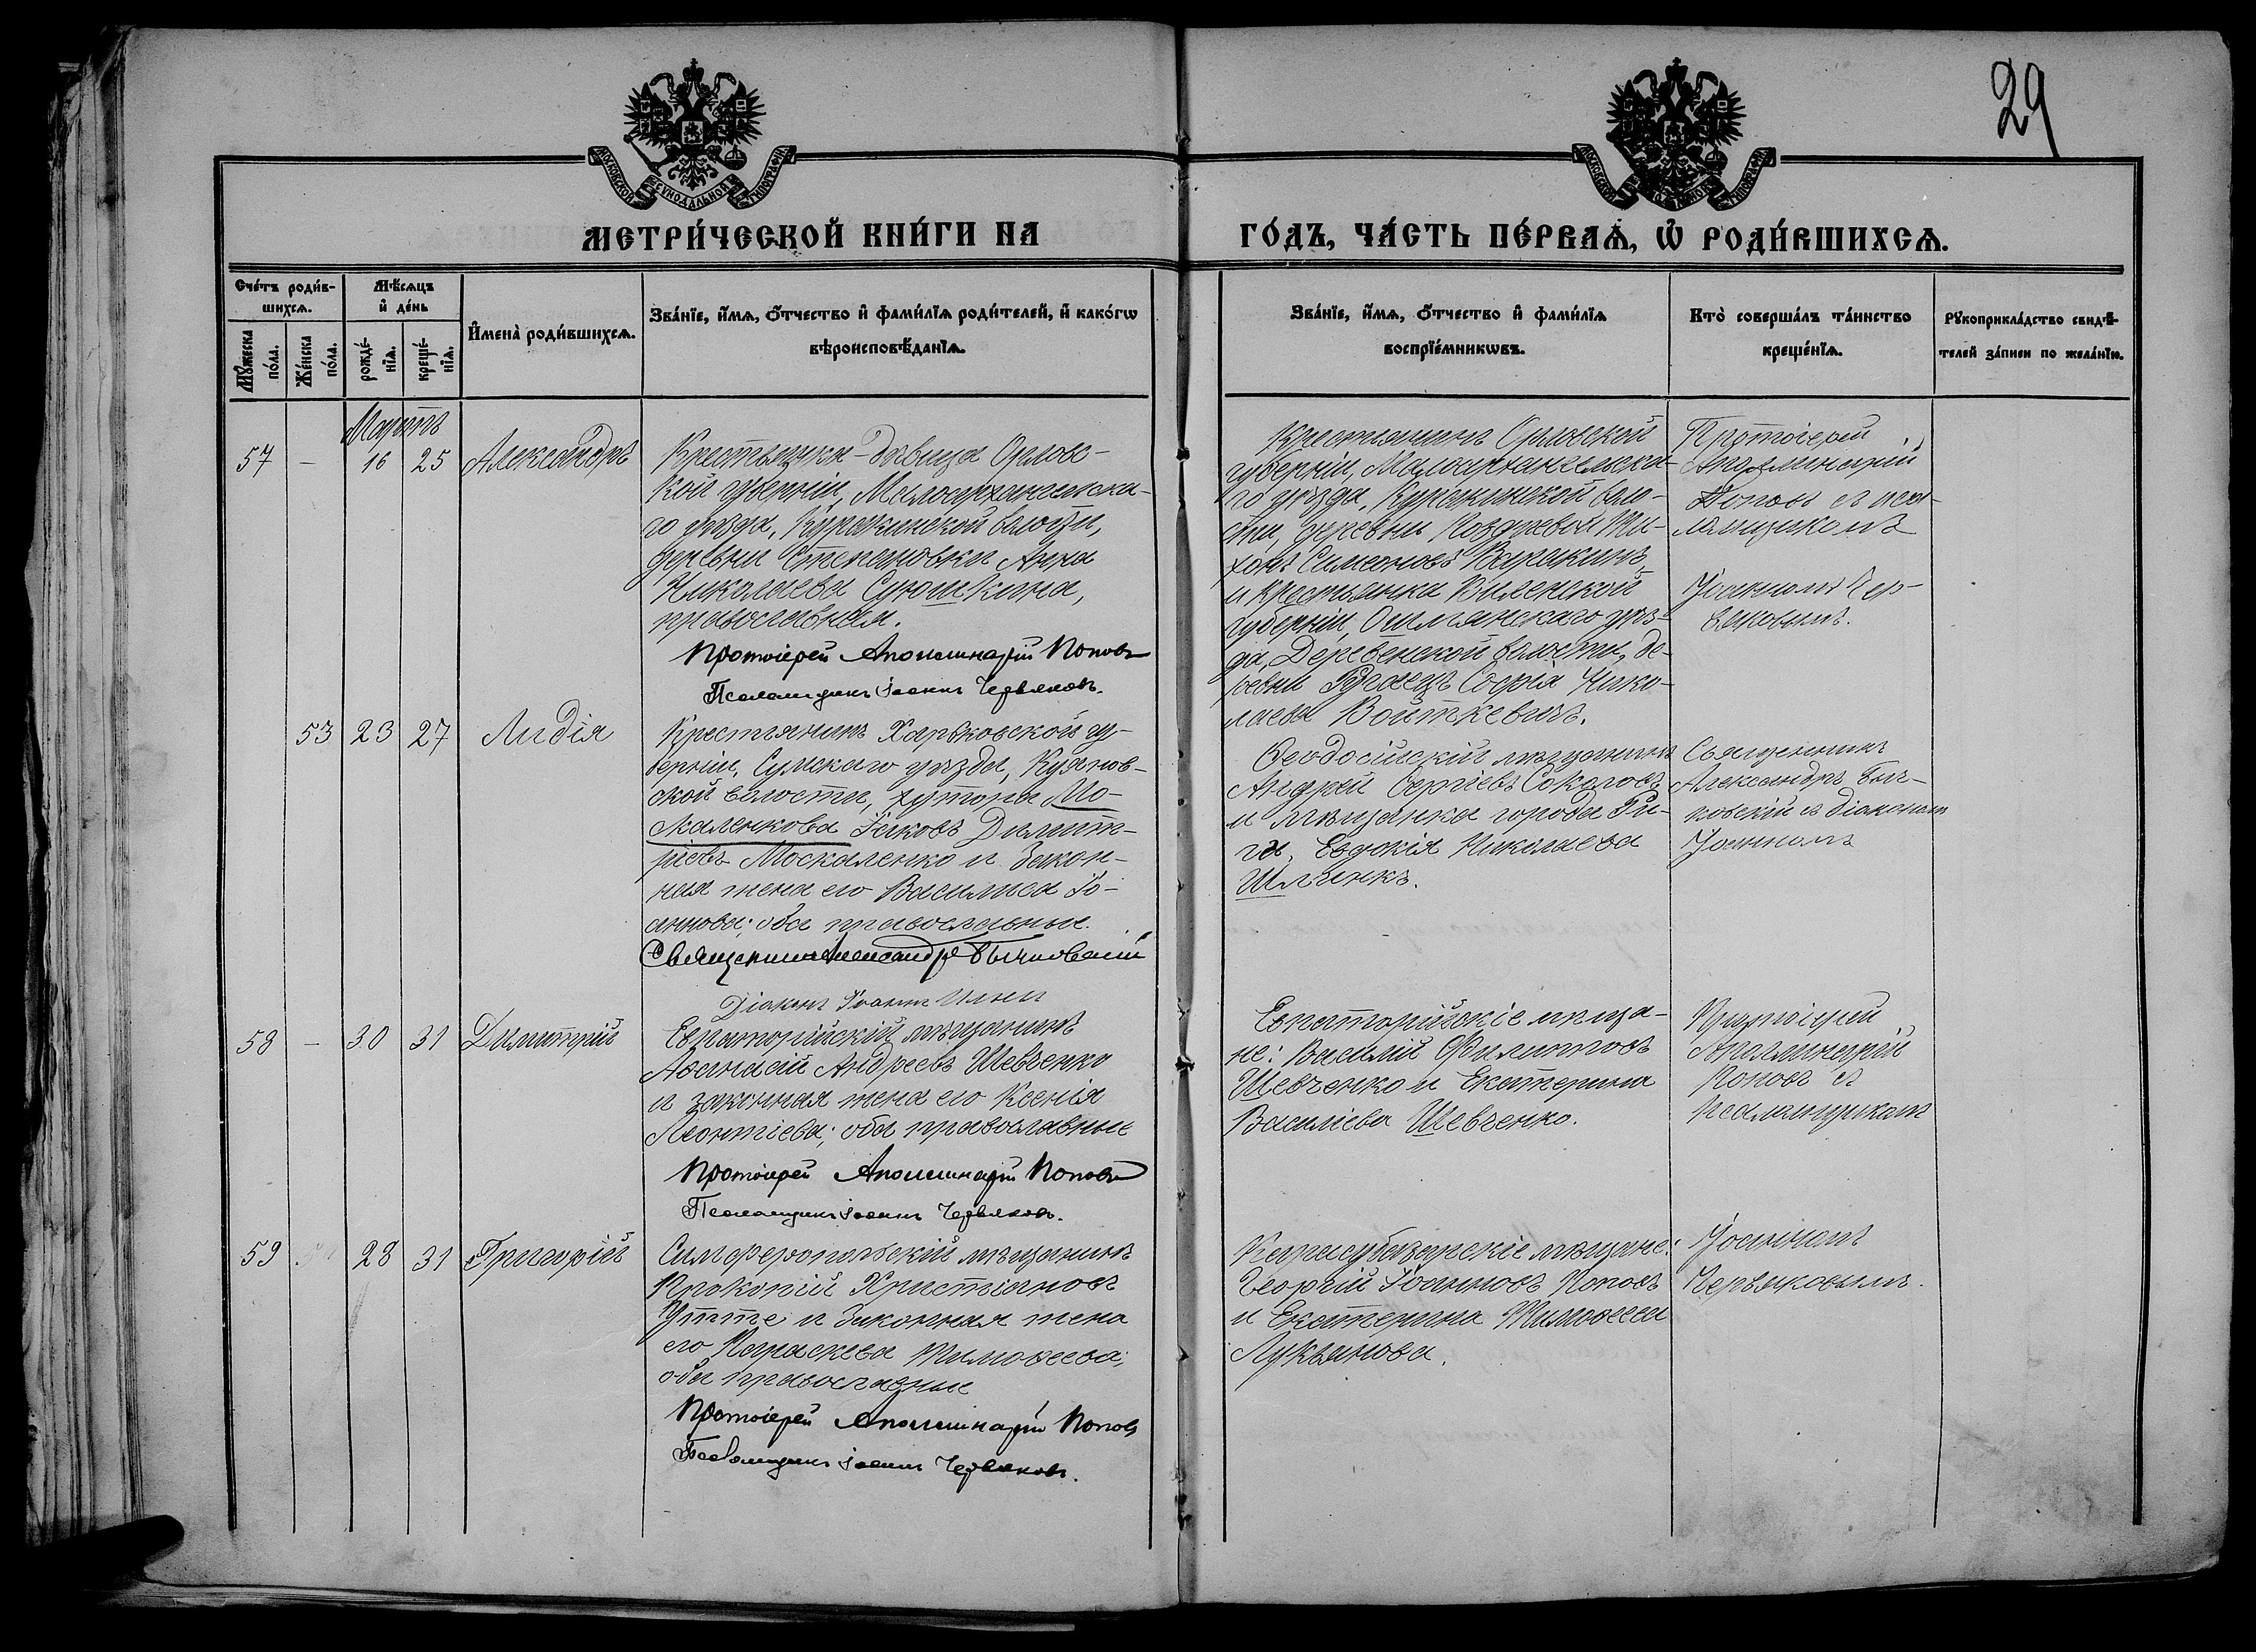 29
МОСКОВСКОЙ СѴНОДАЛЬНОЙ ТИПОГРАФІИ
МЕТРИ́ЧЕСКОЙ КНИ́ГИ НА ГО́ДЪ, ЧА́СТЬ ПЕ́РВАѦ, Ѡ РОДИ́ВШИХСѦ.
Сче́тъ роди́в-
шихсѧ.
Мꙋжеска по́ла.
Же́нска по́ла.
Мѣ́сѧцъ
и҆ де́нь
рожде́-
нїѧ.
креще́-
нїѧ.
И҆мена̀ роди́вшихсѧ.
Зва́нїе, и҆́мѧ, ѻ҆́тчество и҆ фами́лїѧ роди́телей, и҆ како́гѡ
вѣроисповѣ́данїѧ.
Зва́нїе, и҆́мѧ, ѻ҆́тчество и҆ фами́лїѧ
воспрїе́мникѡвъ.
Кто̀ соверша́лъ та́инство
креще́нїѧ.
Рꙋкоприкла́дство свидѣ́-
телей за́писи по жела́нїю.
Мартъ
57 – 16 25 Александръ
Крестьянка-дѣвица Орловс-
кой губерніи, Малоархангельска-
го уѣзда, Куракинской волости,
деревни Степановки Анна
Николаева Сукошкина,
православная.
Протоіерей Аполлинарій Поповъ
Псаломщикъ Іоаннъ Червяковъ.
Крестьянинъ Орловской
губерніи, Малоархангельска-
го уѣзда, Куракинской воло-
сти, деревни Ти-
хонъ Симеоновъ Варакинъ
и крестьянка Виленской
губерніи, Ошмянскаго уѣз-
да, Деревенской волости, де-
ревни Софія Нико-
лаева Войткевичъ.
Протоіерей
Аполлинарій
Поповъ съ пса-
ломщикомъ
Іоанномъ Чер-
вяковымъ.
53 23 27 Лидія
Крестьянинъ Харьковской гу-
берніи, Сумскаго уѣзда, Куянов-
ской волости, хутора Мо-
скаленкова Іаковъ Димит-
ріевъ Москаленко и закон-
ная жена его Василиса Іо-
аннова; оба православные.
Священникъ Александръ Бычковскій
Діаконъ Іоаннъ
Ѳеодосійскій мѣщанинъ
Андрей Сергіевъ Соколовъ
и мѣщанка города Ри-
ги, Евдокія Николаева
Шлинкъ.
Священникъ
Александръ Быч-
ковскій съ діакономъ
Іоанномъ
58 – 30 31 Димитрій
Евпаторійскій мѣщанинъ
Аѳанасій Андреевъ Шевченко
и законная жена его Ксенія
Леонтіева; оба православные
Протоіерей Аполлинарій Поповъ
Псаломщикъ Іоаннъ Червяковъ.
Евпаторійскіе мѣща-
не: Василій Филипповъ
Шевченко и Екатерина
Василіева Шевченко.
Протоіерей
Аполлинарій
Поповъ съ
псаломщикомъ
59 28 31 Григорій
Симферопольскій мѣщанинъ
Прокопій Христіановъ
и законная жена
его Параскева Тимоѳеева;
оба православные
Протоіерей Аполлинарій Поповъ
Псаломщикъ Іоаннъ Червяковъ.
Карасубазарскіе мѣщане:
Георгій Іоанновъ Поповъ
и Екатерина Тимоѳеева
Лукьянова.
Іоанномъ
Червяковымъ.